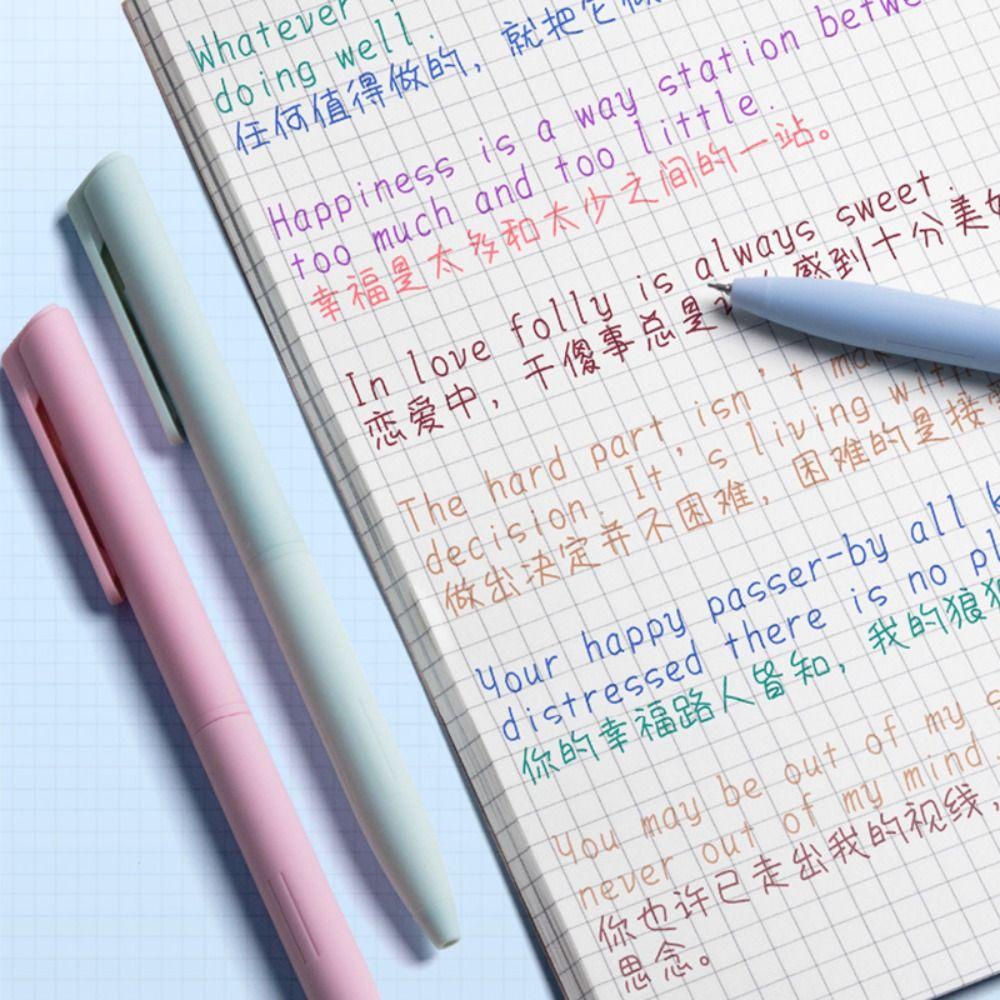 Whatever
doing well.
任何值得做的，就把它
Happiness is a way station
too much and too little.
幸福是太多和太少之间的一站。
In love folly is always sweet.
恋爱中，干傻事总是 感到十分美
The hard part isn't
decision. It's living
做出决定并不困难，困难的是接
Your happy passer-by all
distressed there is no
你的幸福路人皆知，我的狼
You may be out of my
never out of my mind
你也许已走出我的视线，
思念。